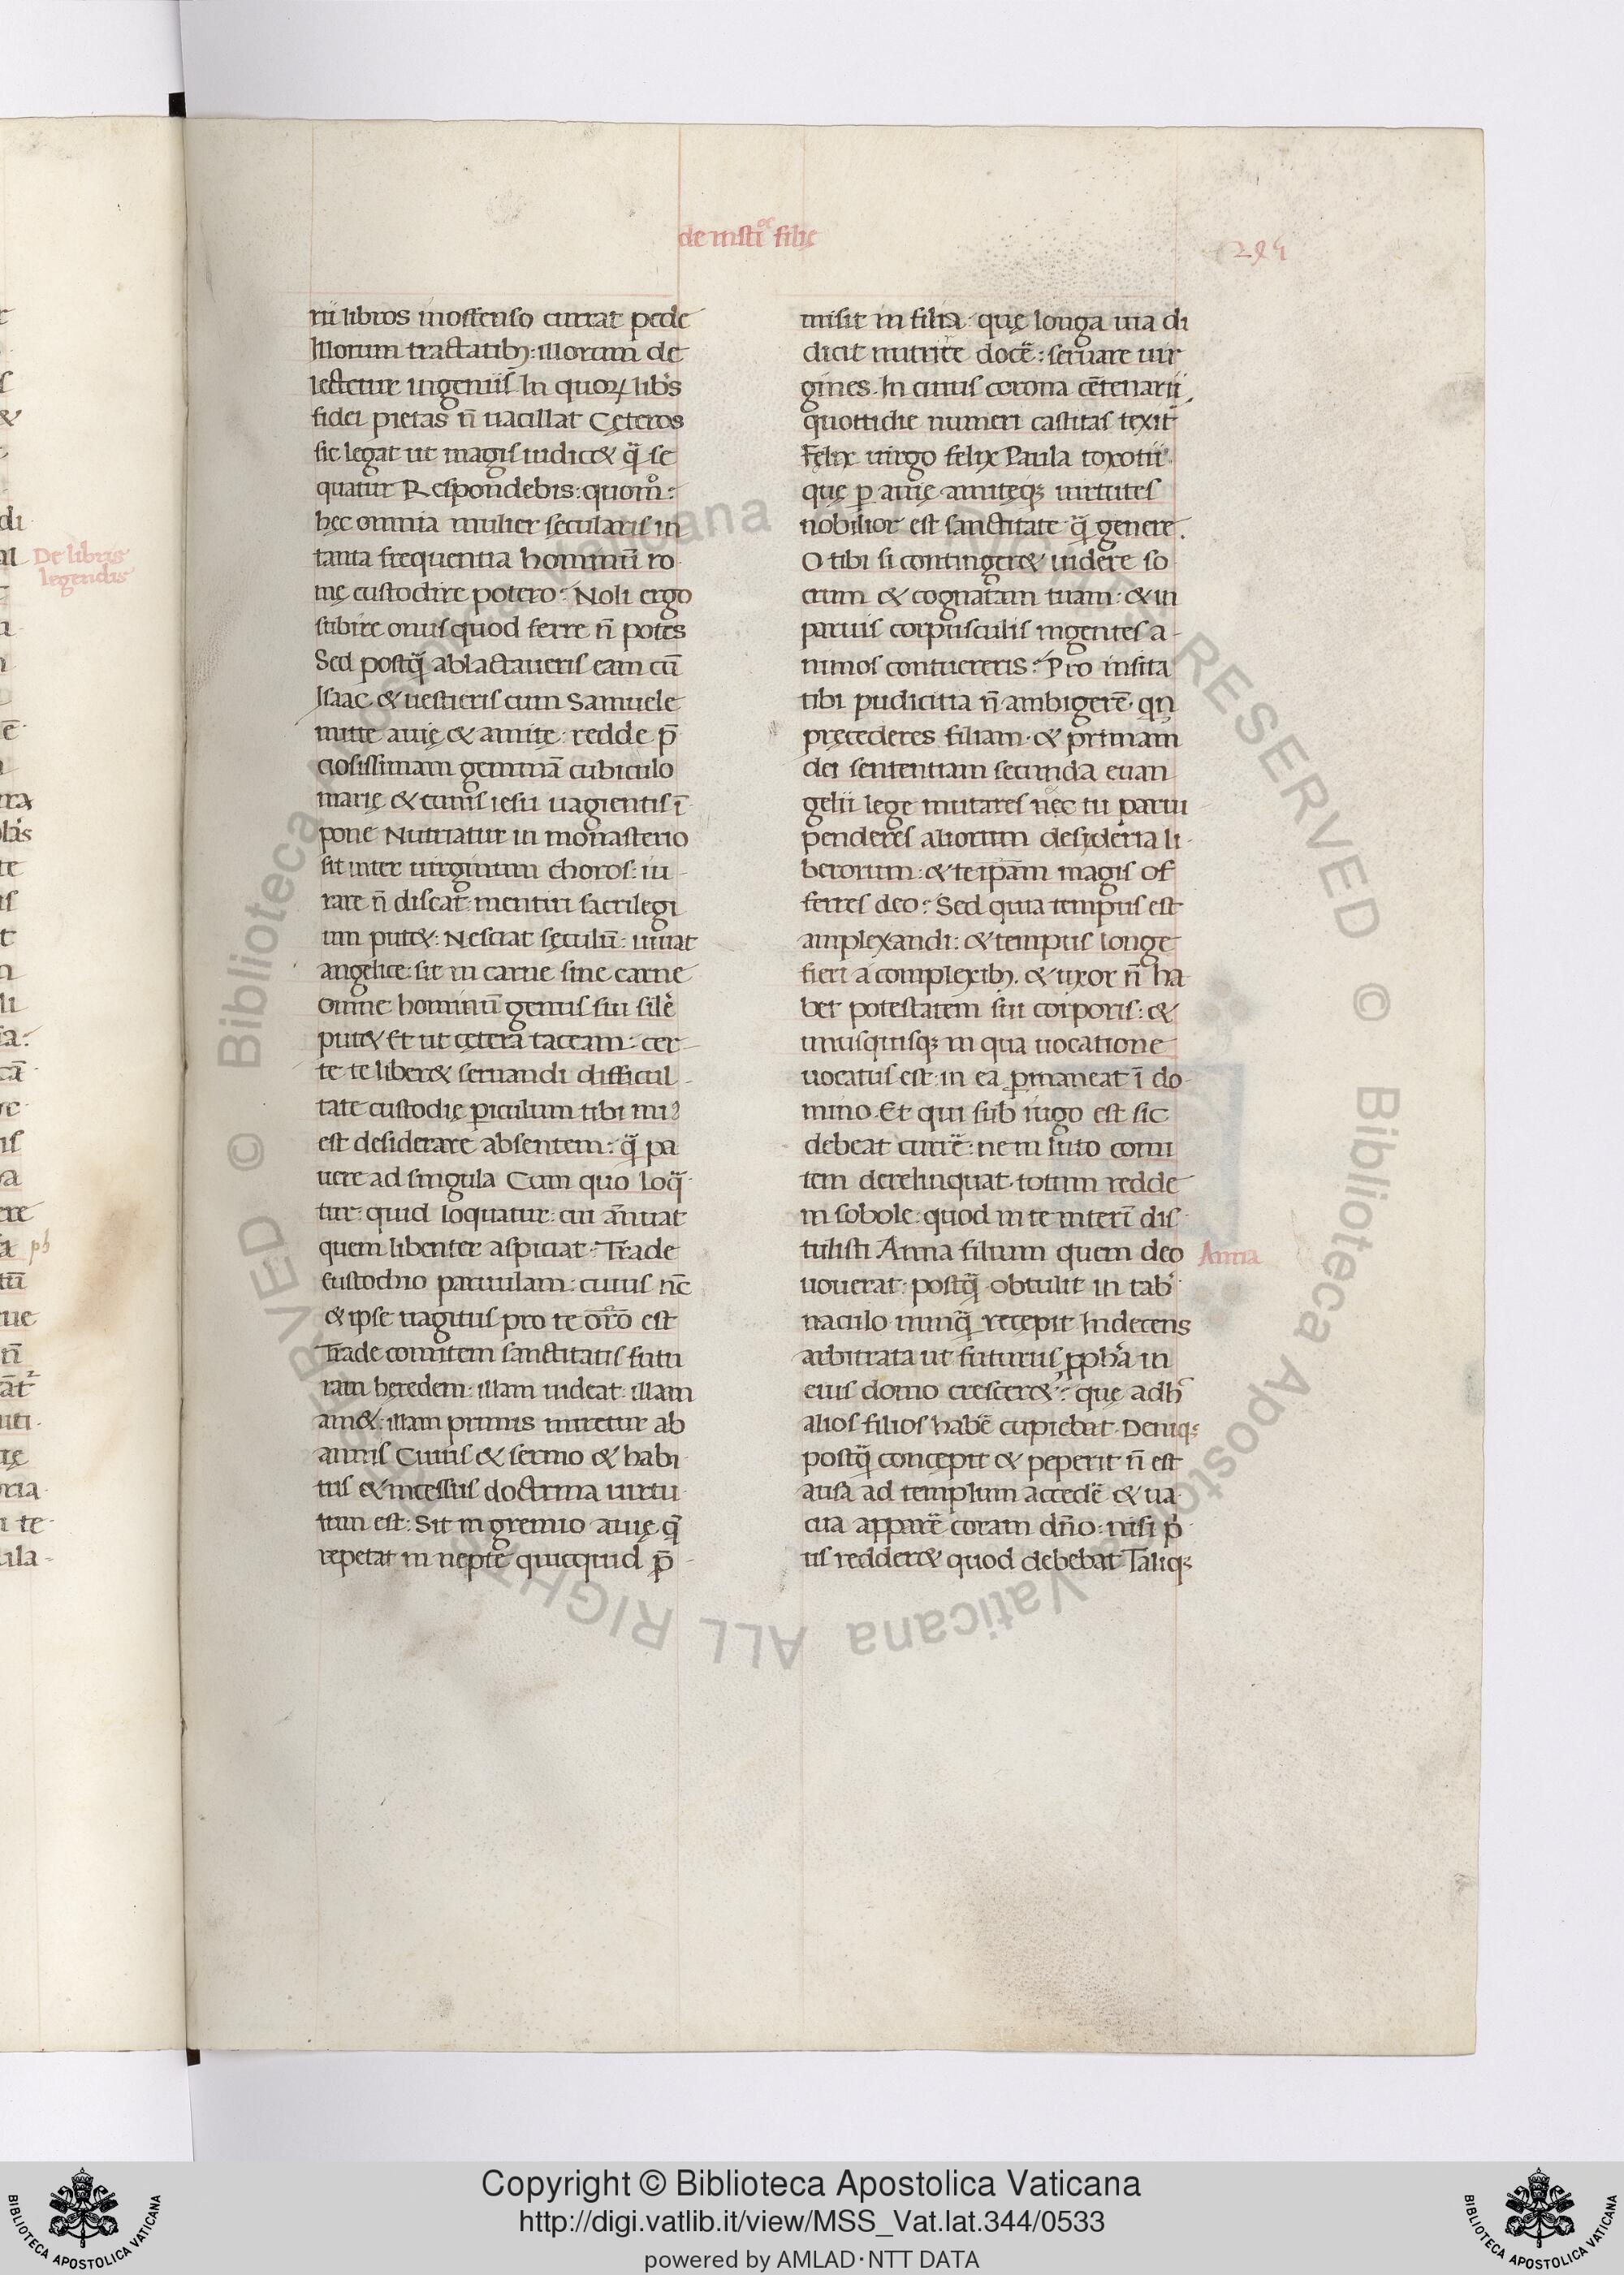 de insti͞oe filię
294
rii libros inoffenso currat pede
Illorum tractatibꝫ: illorum de
lectetur ingeniis In quoꝝ libͥs
fidei pietas n̄ uacillat Cęteros
sic legat ut magis iudic& q̄ se
quatur Respondebis: quom̊:
hęc omnia mulier sęcularis in
tanta frequentia hominū ro
mę custodire potero: Noli ergo
subire onus quod ferre n̄ potes
Sed postq̄ ablactaueris eam cū
Isaac & uestieris cum Samuele
mitte auię & amitę: redde p̄
ciosissimam gemmā cubiculo
marię & cunis iesu uagientis ī
pone Nutriatur in monasterio
sit inter uirginum choros: iu
rare n̄ discat: mentiri sacrilegi
um put&: Nesciat sęculū: uiuat
angelice: sit in carne sine carne
omne hominū genus sui silē
put& Et ut cętera taceam: cer
te te liber& seruandi difficul
tate custodię ꝑiculum tibi mi
est desiderare absentem: q̄ pa
uere ad singula Cum quo loq̄
tur: quid loquatur: cui ānuat
quem libenter aspiciat: Trade
eustochio paruulam: cuius nc̄
& ipse uagitus pro te or̄o est
Trade comitem sanctitatis futu
ram heredem: illam uideat: illam
am&: illam primis miretur ab
annis Cuius & sermo & habi
tus & incessus doctrina uirtu
tum est: Sit in gremio auię q̄
repetat in nepte quicquid p̄
misit in filia quę longa uia di
dicit nutrire docē: seruare uir
gines. In cuius corona cētenarii
quottidie numeri castitas texit̄
Fęlix uirgo felix Paula toxotii
quę ꝑ auię amitęqꝫ uirtutes
nobilior est sanctitate q̄ genere.
O tibi si continger& uidere so
crum & cognatam tuam: & in
paruis corpusculis ingentes a
nimos contuereris: Pro insita
tibi pudicitia n̄ ambigerē qn̄
pręcederes filiam & primam
dei sententiam secunda euan
gelii lege mutares nec tu parui
penderes aliorum desyderia li
berorum: & teipsam magis of
ferres deo: Sed quia tempus est
amplexandi: & tempus longe
fieri a complexibꝫ. & uxor n̄ ha
bet potestatem sui corporis: &
unusquisqꝫ in qua uocatione
uocatus est: in ea ꝑmaneat ī do
mino Et qui sub iugo est sic
debeat currē: ne in luto comi
tem derelinquat totum redde
in sobole: quod in te interī dis
tulisti Anna filium quem deo
Anna
uouerat postq̄ obtulit in tab̄
naculo nunq̄ recepit Indecens
arbitrata ut futurus ꝓph̄a in
eius domo crescer&: quę adh̄
alios filios habē cupiebat Deniqꝫ
postq̄ concępit & peperit n̄ est
ausa ad templum accedē & ua
cua apparē coram dn̄o: nisi p̄
us redder& quod debebat Taliqꝫ
De libris
legendis
Copyright © Biblioteca Apostolica Vaticana
http://digi.vatlib.it/view/MSS_Vat.lat.344/0533
powered by AMLAD·NTT DATA
BIBLIOTECA APOSTOLICA VATICANA
BIBLIOTECA APOSTOLICA VATICANA